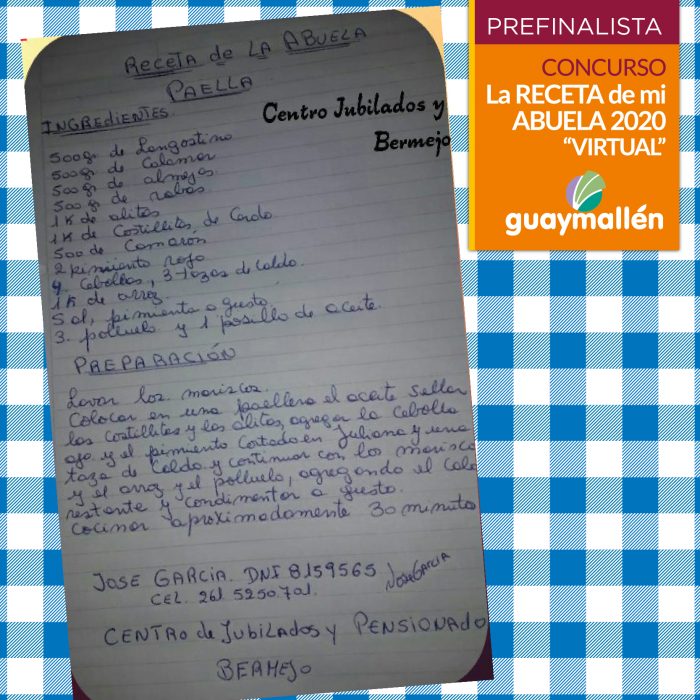 RECETA de LA ABUELA
PAELLA
INGREDIENTES
Centro Jubilados y
Bermejo
500gr de Langostino
500gr de Calamar
500gr de almejas
500gr de rabas
1K de alitas
1K de Costillitas, de Cerdo
500 de Camaron
2 pimiento rojo
4 Cebollas, 3 tazas de Caldo.
1K de arroz.
Sal, pimienta a gusto
3. polluelo y 1 posillo de aceite.
PREPARACIÓN
Lavar los mariscos.
Colocar en una paellera el aceite Sellar
las costillitas y las alitas, agregar la Cebolla
ajo y el pimiento Cortado en Juliana y una
taza de Caldo y continuar con los marisco
y el arroz y el polluelo, agregando el Cald
restante y condimentar a gusto.
Cocinar aproximadamente 30 minutos
JOSE GARCIA. DNI 8159565
JOSE GARCIA
CEL. 261 5250.701.
CENTRO de JUBILADOS y PENSIONADO
BERMEJO
PREFINALISTA
CONCURSO
La RECETA de mi
ABUELA 2020
“VIRTUAL”
guaymallén